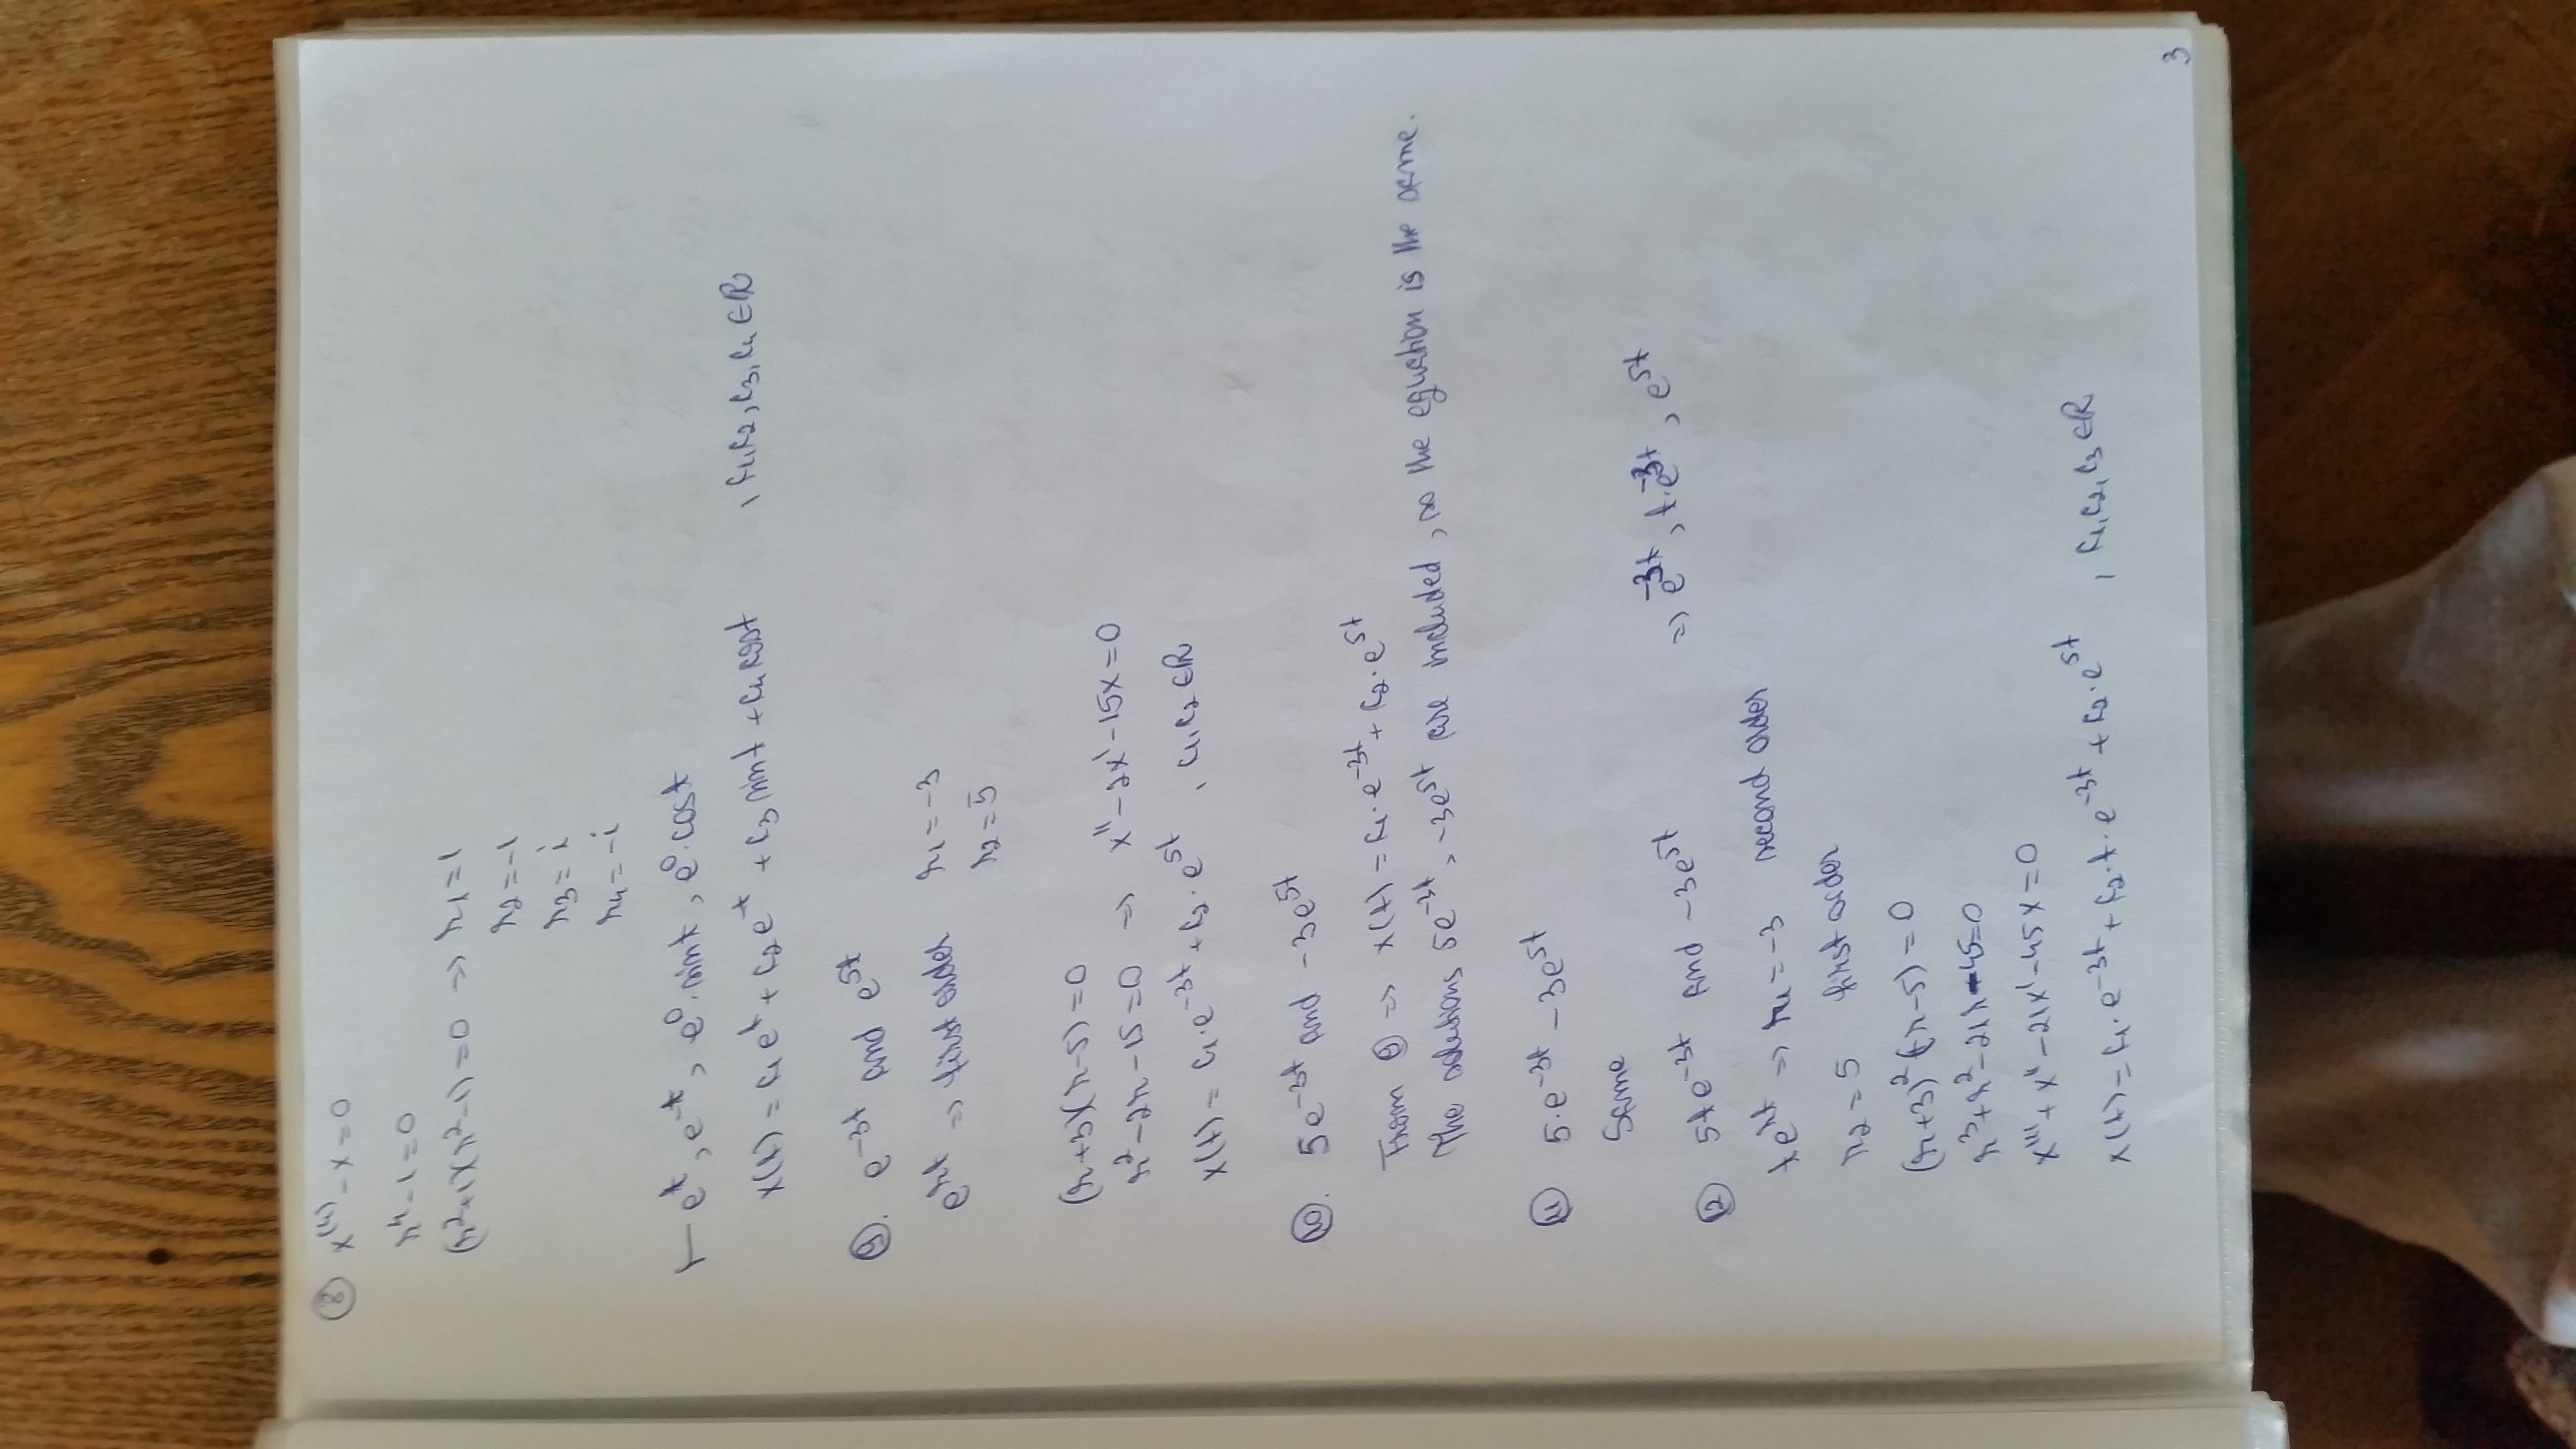 ⑧ x⁽⁴⁾ - x = 0
r⁴ - 1 = 0
(r²+1)(r²-1) = 0 => r₁ = 1
r₂ = -1
r₃ = i
r₄ = -i
eᵗ, e⁻ᵗ, e⁰·sint, e⁰·cost
x(t) = c₁eᵗ + c₂e⁻ᵗ + c₃ sint + c₄ cost , c₁,c₂,c₃,c₄ ∈ ℝ
⑨. e⁻³ᵗ and e⁵ᵗ
eʳᵗ => first order r₁ = -3
r₂ = 5
(r+3)(r-5) = 0
r² - 2r - 15 = 0 => x'' - 2x' - 15x = 0
x(t) = c₁·e⁻³ᵗ + c₂·e⁵ᵗ , c₁,c₂ ∈ ℝ
⑩. 5e⁻³ᵗ and -3e⁵ᵗ
From ⑨ => x(t) = c₁·e⁻³ᵗ + c₂·e⁵ᵗ
The solutions 5e⁻³ᵗ, -3e⁵ᵗ are included, so the equation is the same.
⑪ 5·e⁻³ᵗ - 3e⁵ᵗ
Same
⑫ 5te⁻³ᵗ and -3e⁵ᵗ => e⁻³ᵗ, t·e⁻³ᵗ, e⁵ᵗ
teʳᵗ => r₁ = -3 second order
r₂ = 5 first order
(r+3)²(r-5) = 0
r³ + r² - 21r - 45 = 0
x''' + x'' - 21x' - 45x = 0
x(t) = c₁·e⁻³ᵗ + c₂·t·e⁻³ᵗ + c₂·e⁵ᵗ , c₁,c₂,c₃ ∈ ℝ
3